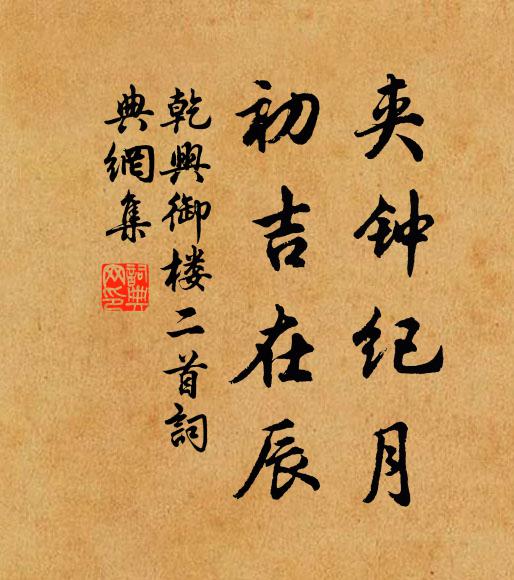 夹钟纪月
初吉在辰
乾興御楼二首詞
典網集
詞典网印